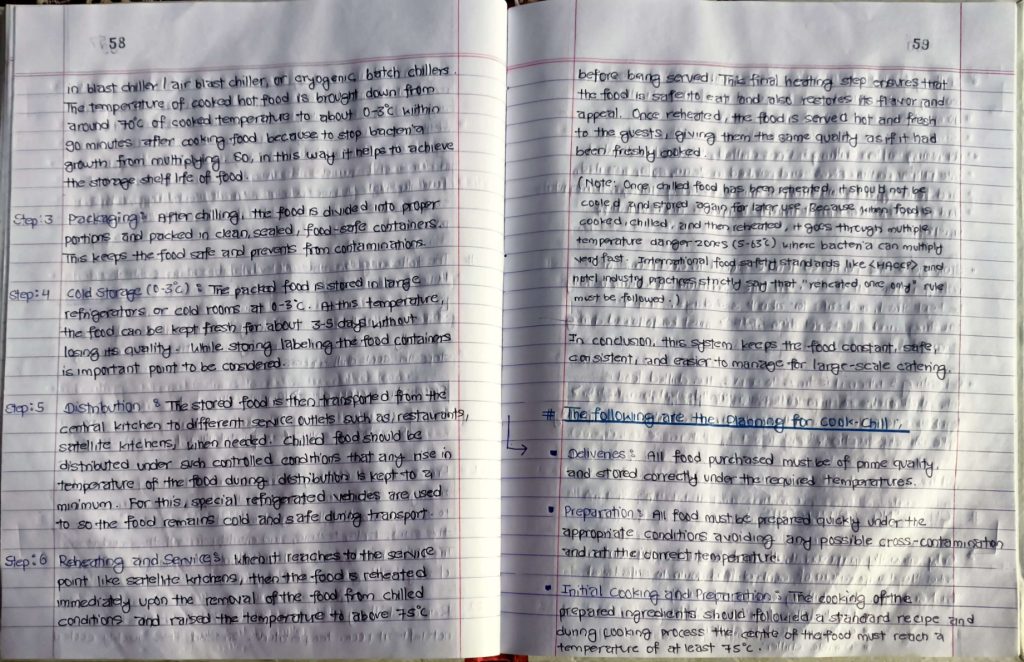 58
in blast chiller / air blast chiller, or cryogenic batch chillers.
The temperature of cooked hot food is brought down from
around 70°C of cooked temperature to about 0-3°C within
90 minutes after cooking food because to stop bacteria
growth from multiplying. So, in this way it helps to achieve
the storage shelf life of food.
Step:3 Packaging: After chilling, the food is divided into proper
portions and packed in clean, sealed, food-safe containers.
This keeps the food safe and prevents from contaminations.
Step:4 Cold Storage (0-3°C): The packed food is stored in large
refrigerators or cold rooms at 0-3°C. At this temperature,
the food can be kept fresh for about 3-5 days without
losing its quality. While storing labeling the food containers
is important point to be considered.
Step:5 Distribution: The stored food is then transported from the
central kitchen to different service outlets such as restaurants,
satellite kitchens, when needed. Chilled food should be
distributed under such controlled conditions that any rise in
temperature of the food during distribution is kept to a
minimum. For this, special refrigerated vehicles are used
to so the food remains cold and safe during transport.
Step:6 Reheating and Services: When it reaches to the service
point like satellite kitchens, then the food is reheated
immediately upon the removal of the food from chilled
conditions and raised the temperature to above 75°C
59
before being served. This final heating step ensures that
the food is safe to eat and also restores its flavor and
appeal. Once reheated, the food is served hot and fresh
to the guests, giving them the same quality as if it had
been freshly cooked.
(Note: Once chilled food has been reheated, it should not be
cooled and stored again for later use. Because when food is
cooked, chilled, and then reheated, it goes through multiple
temperature danger zones (5-63°C) where bacteria can multiply
very fast. International food safety standards like <HACCP> and
hotel industry practices strictly say that, "reheated, once, only" rule
must be followed.)
In conclusion, this system keeps the food constant, safe,
consistent, and easier to manage for large-scale catering.
# The following are the planning for cook-chill:
• Deliveries: All food purchased must be of prime quality
and stored correctly under the required temperatures.
• Preparation: All food must be prepared quickly under the
appropriate conditions avoiding any possible cross-contamination
and at the correct temperature.
• Initial Cooking and Preparation: The cooking of the
prepared ingredients should followed a standard recipe and
during cooking process the centre of the food must reach a
temperature of at least 75°C.